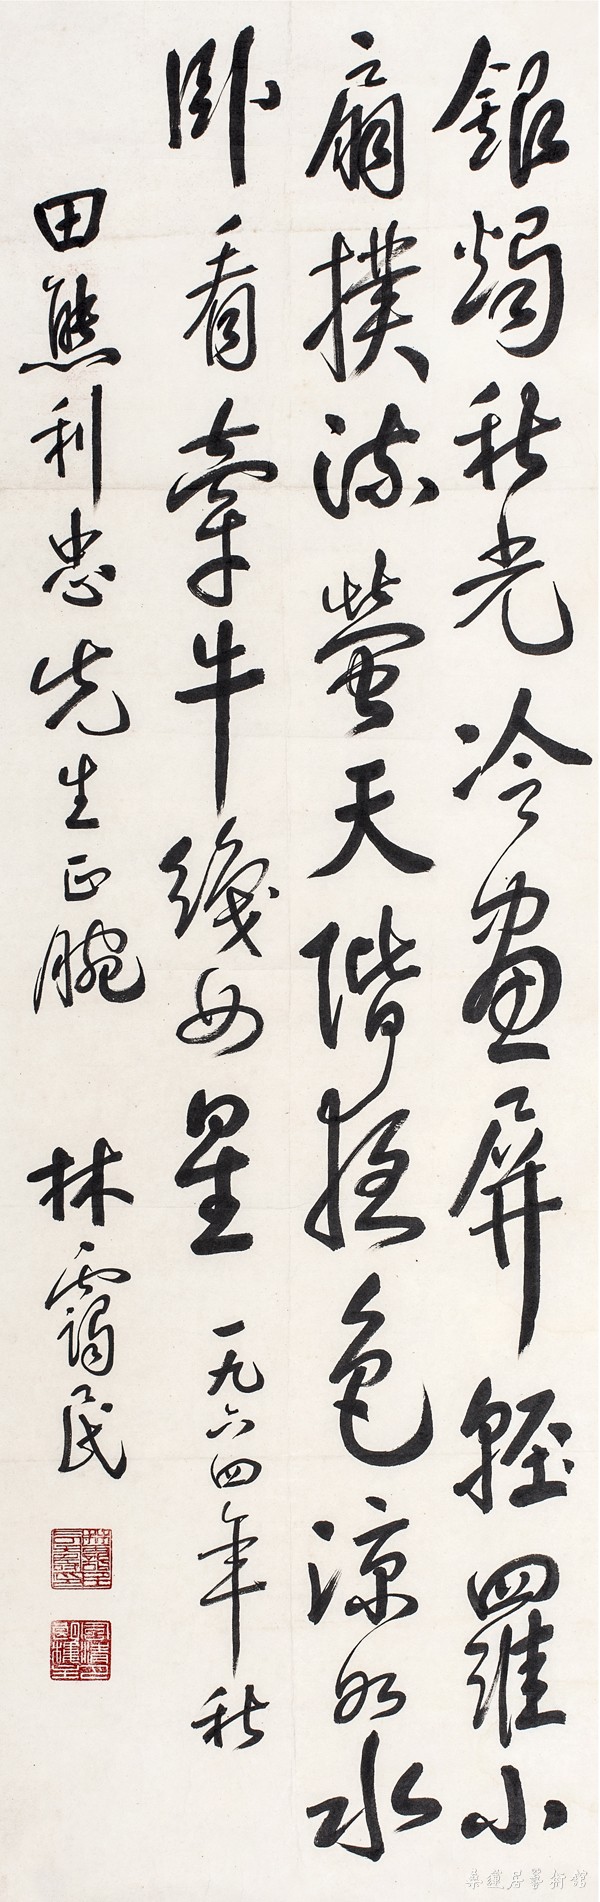 銀燭秋光冷畫屏輕羅小
扇撲流螢天階夜色涼如水
卧看牽牛織女星 一九六四年秋
田熊利忠先生正腕 林靄民
桑蓮居藝術館